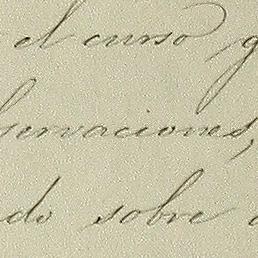 el curso
servaciones,
do sobre